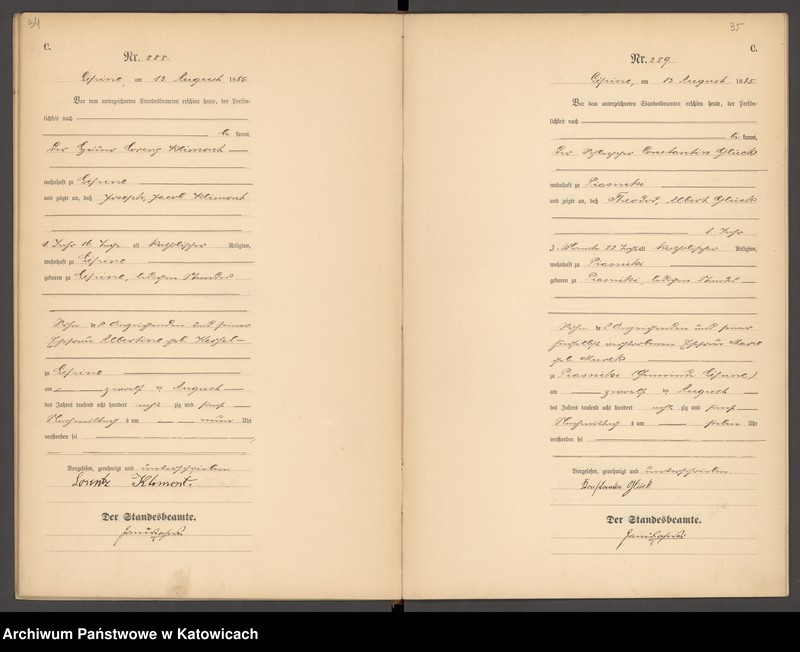 34
C.
Nr. 288.
Lipine, am 13 August 1885.
Vor dem unterzeichneten Standesbeamten erschien heute, der Persön-
lichkeit nach
be kannt,
der Lorenz Klimont
wohnhaft zu Lipine
und zeigte an, daß Joseph, Jacob Klimont
1 Jahr alt katholischer Religion,
wohnhaft zu Lipine
geboren zu Lipine, ledigen Standes
Sohn des Anzeigenden und seiner
Ehefrau Albertine geb.
zu Lipine
am zwölften August
des Jahres tausend acht hundert acht zig und fünf
Nachmittag s um neun Uhr
verstorben sei
Vorgelesen, genehmigt und unterschrieben
Lorentz Klimont.
Der Standesbeamte.
35
C.
Nr. 289.
Lipine, am 13 August 1885.
Vor dem unterzeichneten Standesbeamten erschien heute, der Persön-
lichkeit nach
be kannt,
der Constantin Glück
wohnhaft zu Piasniki
und zeigte an, daß Theodor, Albert Glück
1 Jahr
3 Monate 22 Tage alt katholischer Religion,
wohnhaft zu Piasniki
geboren zu Piasniki, ledigen Standes
Sohn des Anzeigenden und seiner
verstorbenen Ehefrau Marie
geb. Murek
zu Piasniki (Gemeinde Lipine)
am zwölften August
des Jahres tausend acht hundert acht zig und fünf
Nachmittag s um sieben Uhr
verstorben sei
Vorgelesen, genehmigt und unterschrieben.
Glück
Der Standesbeamte.
Archiwum Państwowe w Katowicach